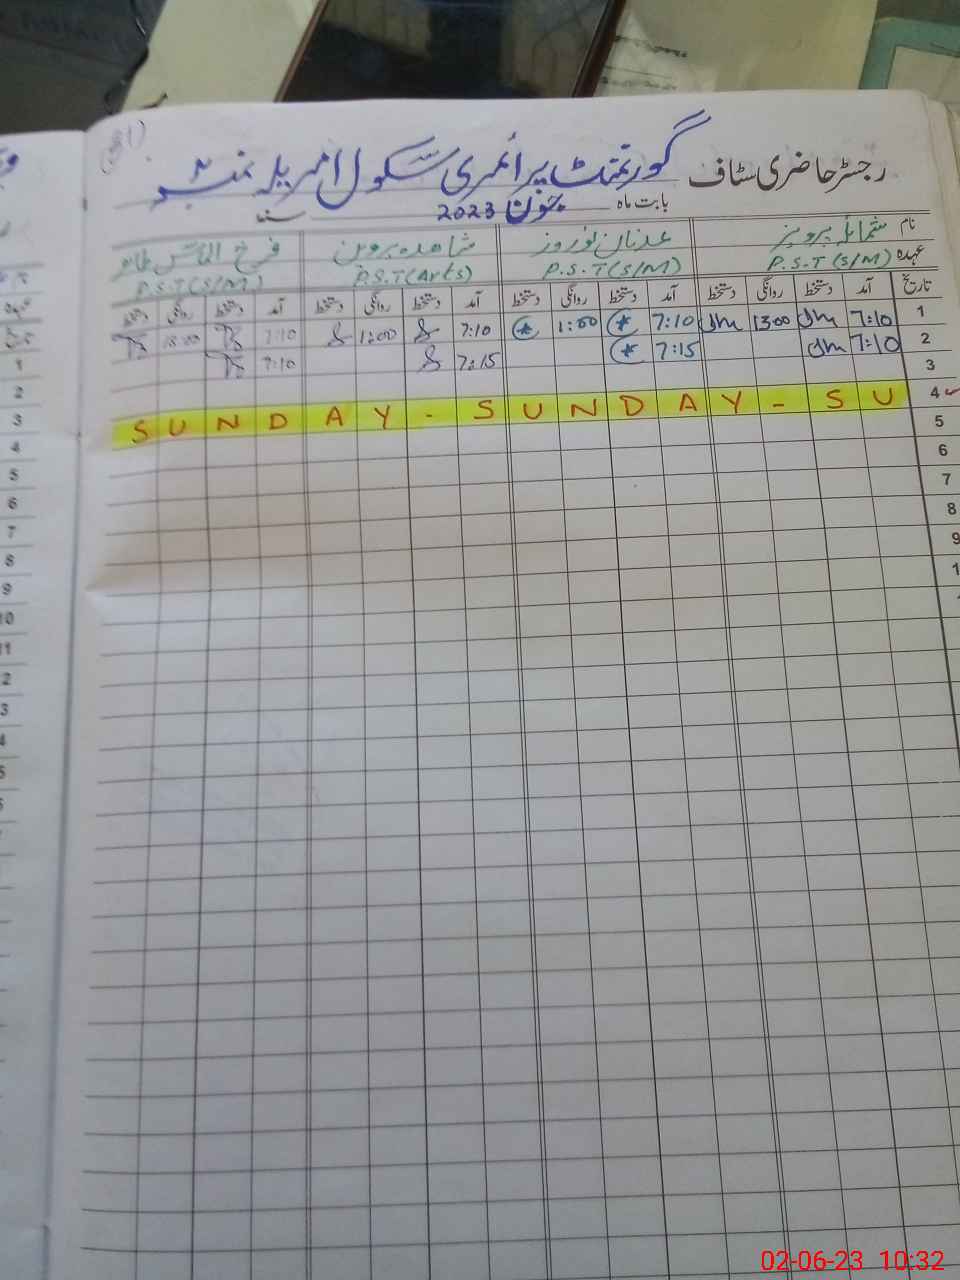 رجسٹر حاضری سٹاف گورنمنٹ پرائمری سکول امریلہ نمبر
بابت ماہ جون 2023
نام شمائلہ پرویز عدنان نوروز شاھدہ پروین فرخ الماس طاہر
عہدہ P.S.T (S/M) P.S.T (S/M) P.S.T (Arts) P.S.T (S/M)
تاریخ آمد دستخط روانگی دستخط آمد دستخط روانگی دستخط آمد دستخط روانگی دستخط آمد دستخط روانگی دستخط
1 7:10 13:00 7:10 1:00 7:10 1:00 7:10 13:00
2 7:10 7:15 7:15 7:10
3
4 SUNDAY - SUNDAY - SU
5
6
7
8
9
1
1
2
3
4
5
6
7
8
9
10
11
2
3
4
5
02-06-23 10:32